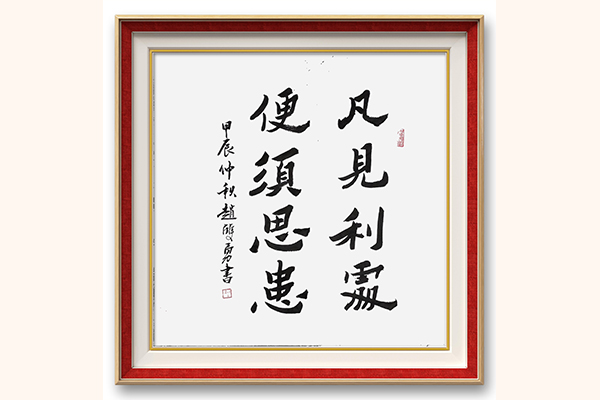 凡見利處
便須思患
甲辰仲秋趙雙勇書